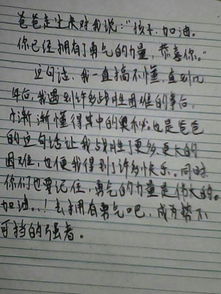 爸爸走过来对我说:“孩子,加油。
你已经拥有勇气的力量,恭喜你。”
这句话,我一直搞不懂,直到几
年后,我遇到许多战胜困难的事后,
才渐渐懂得其中的奥妙。也是爸爸
的这句话让我战胜了更多更大的
困难,也使我得到了许多快乐。同时
你们也要记住,勇气的力量是伟大的。
加油..!去拥有勇气吧,成为势不
可挡的强者。